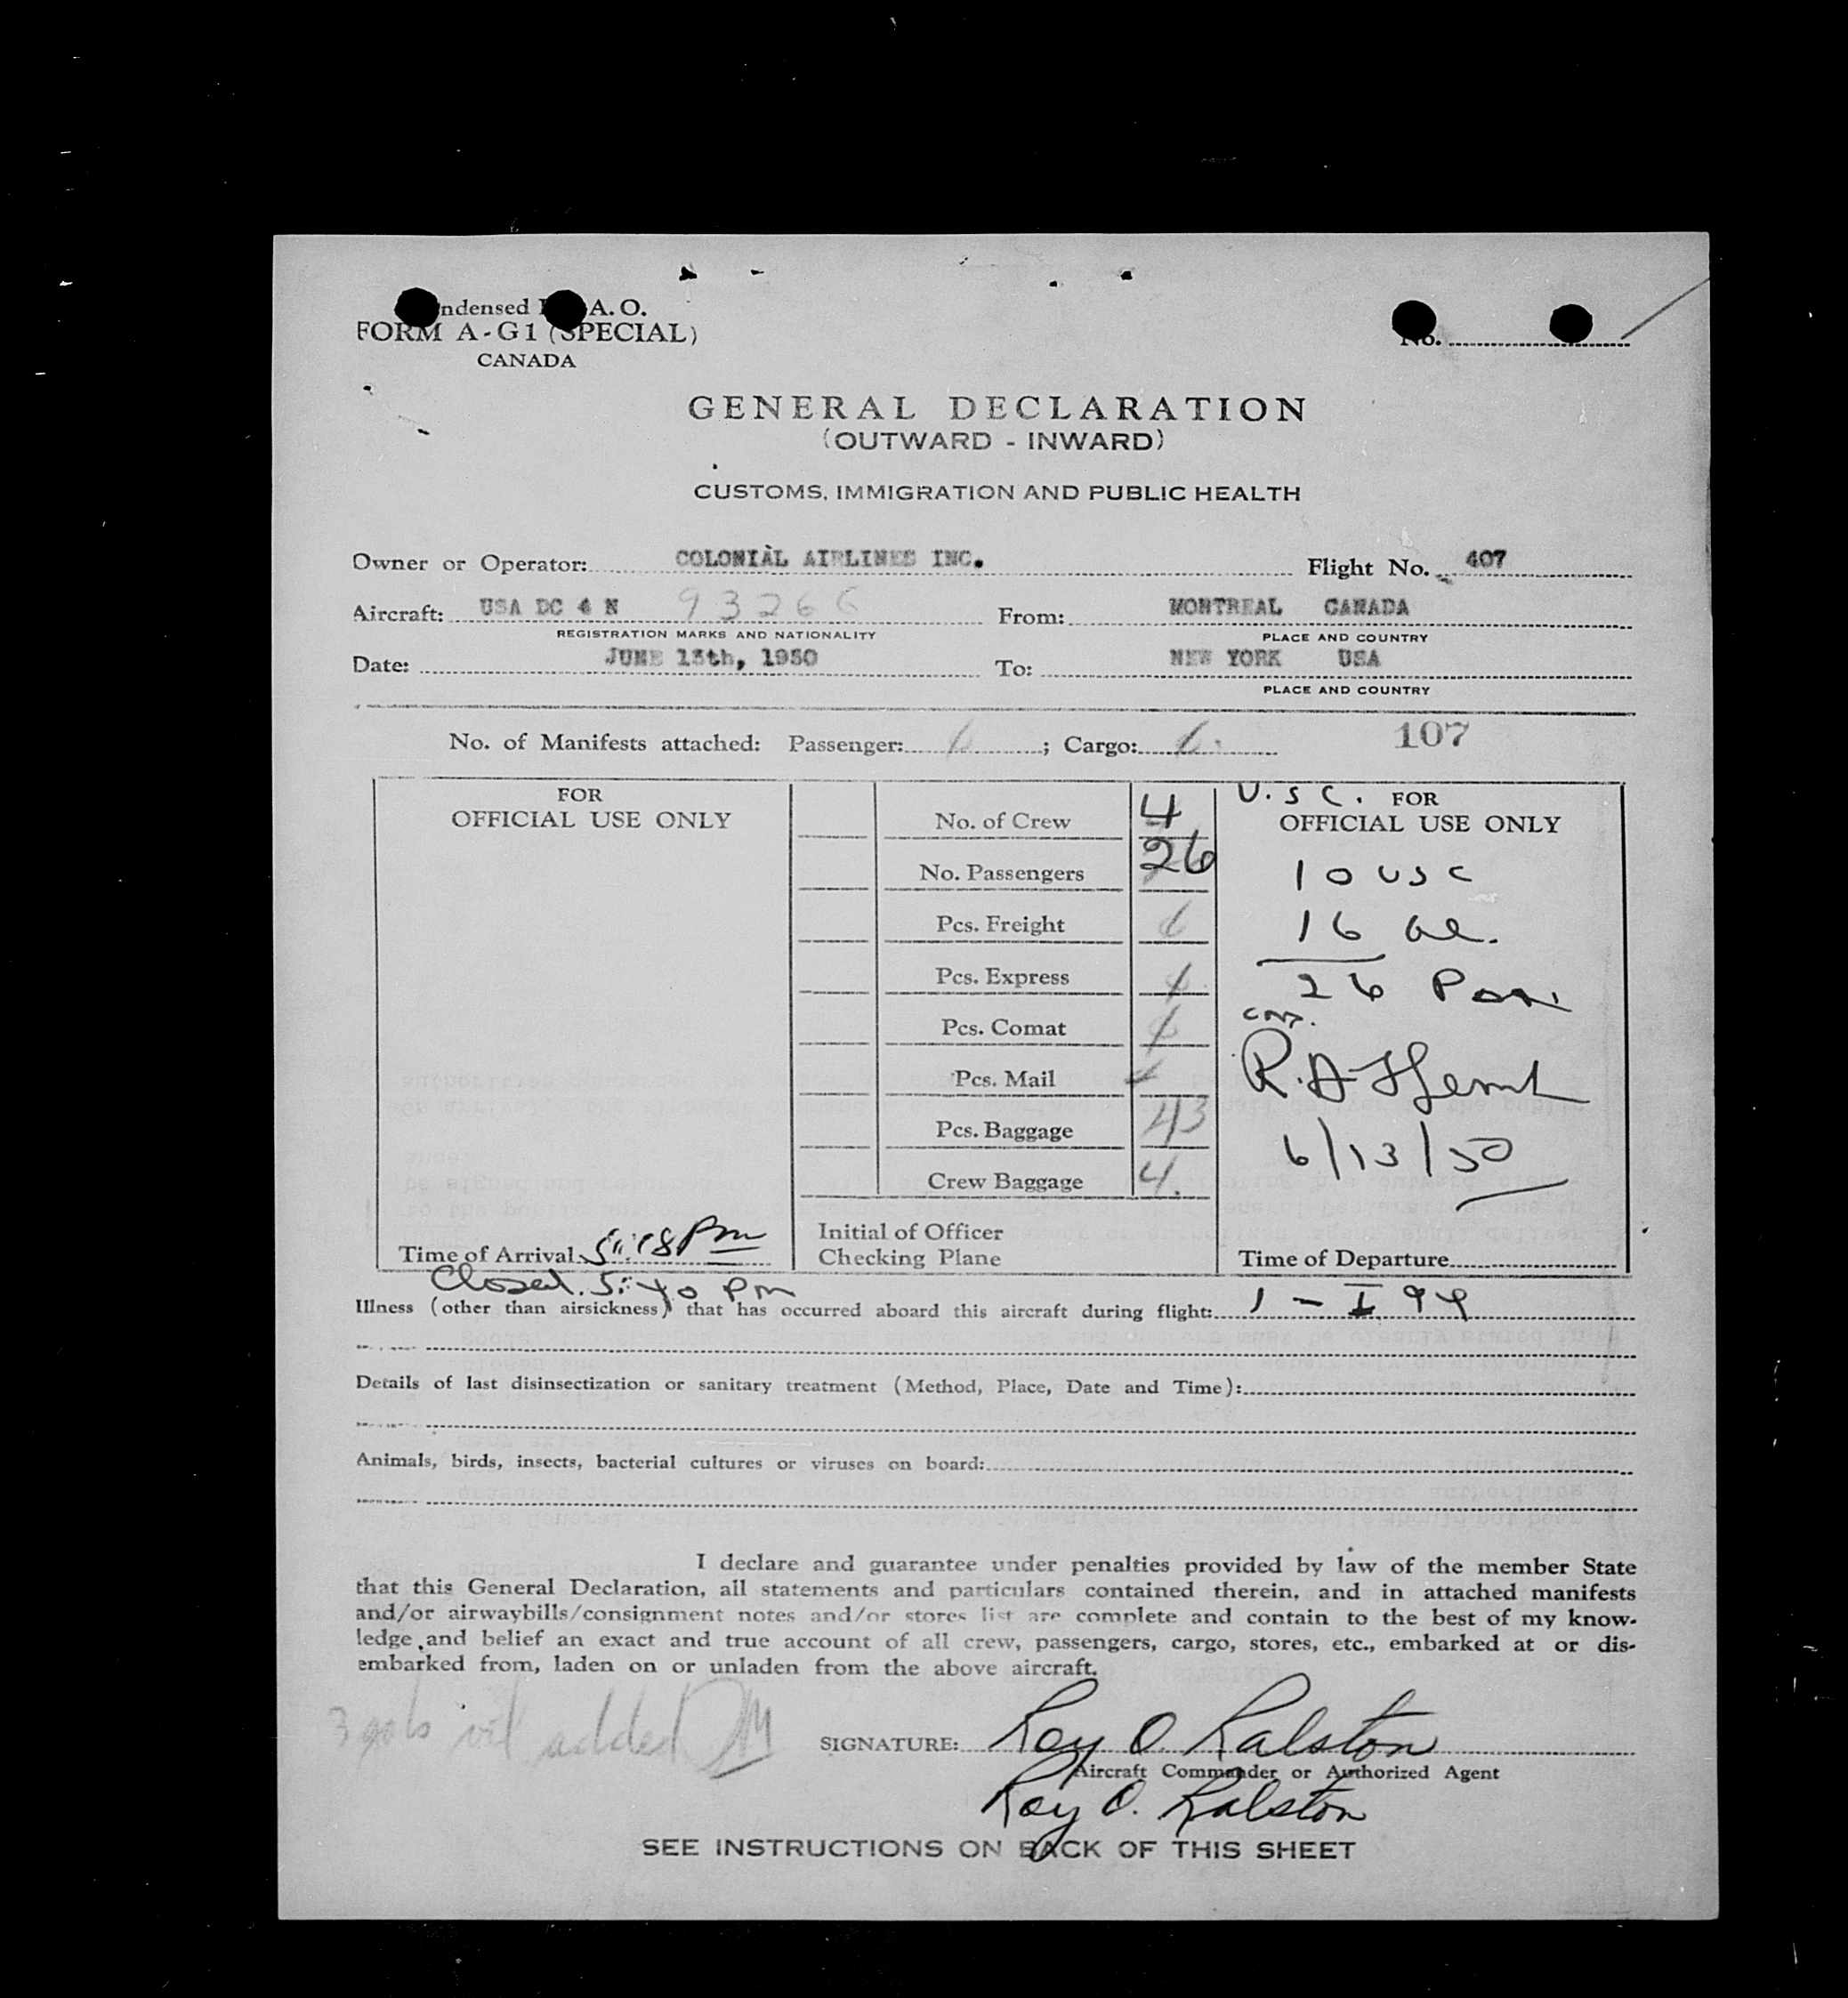 ndensed A. O.
FORM A-G1 (SPECIAL)
CANADA
No.
GENERAL DECLARATION
(OUTWARD - INWARD)
CUSTOMS, IMMIGRATION AND PUBLIC HEALTH
Owner or Operator: COLONIAL AIRLINES INC. Flight No. 407
Aircraft: USA DC 4 N 93266 From: MONTREAL CANADA
REGISTRATION MARKS AND NATIONALITY PLACE AND COUNTRY
Date: JUNE 13th, 1950 To: NEW YORK USA
PLACE AND COUNTRY
No. of Manifests attached: Passenger: ; Cargo: 107
FOR OFFICIAL USE ONLY
No. of Crew 4
No. Passengers 26
Pcs. Freight
Pcs. Express
Pcs. Comat
Pcs. Mail
Pcs. Baggage 43
Crew Baggage 4.
Initial of Officer
Checking Plane
U.S C. FOR
OFFICIAL USE ONLY
10 USC
16 al.
26 Pass
6/13/50
Time of Arrival 5:18 Pm
Time of Departure
Closed. 5:40 Pm
Illness (other than airsickness) that has occurred aboard this aircraft during flight: 1 - I 94
Details of last disinsectization or sanitary treatment (Method, Place, Date and Time):
Animals, birds, insects, bacterial cultures or viruses on board:
I declare and guarantee under penalties provided by law of the member State
that this General Declaration, all statements and particulars contained therein, and in attached manifests
and/or airwaybills/consignment notes and/or stores list are complete and contain to the best of my know-
ledge and belief an exact and true account of all crew, passengers, cargo, stores, etc., embarked at or dis-
embarked from, laden on or unladen from the above aircraft.
3 gals oil added
SIGNATURE: Roy O. Ralston
Aircraft Commander or Authorized Agent
Roy O. Ralston
SEE INSTRUCTIONS ON BACK OF THIS SHEET